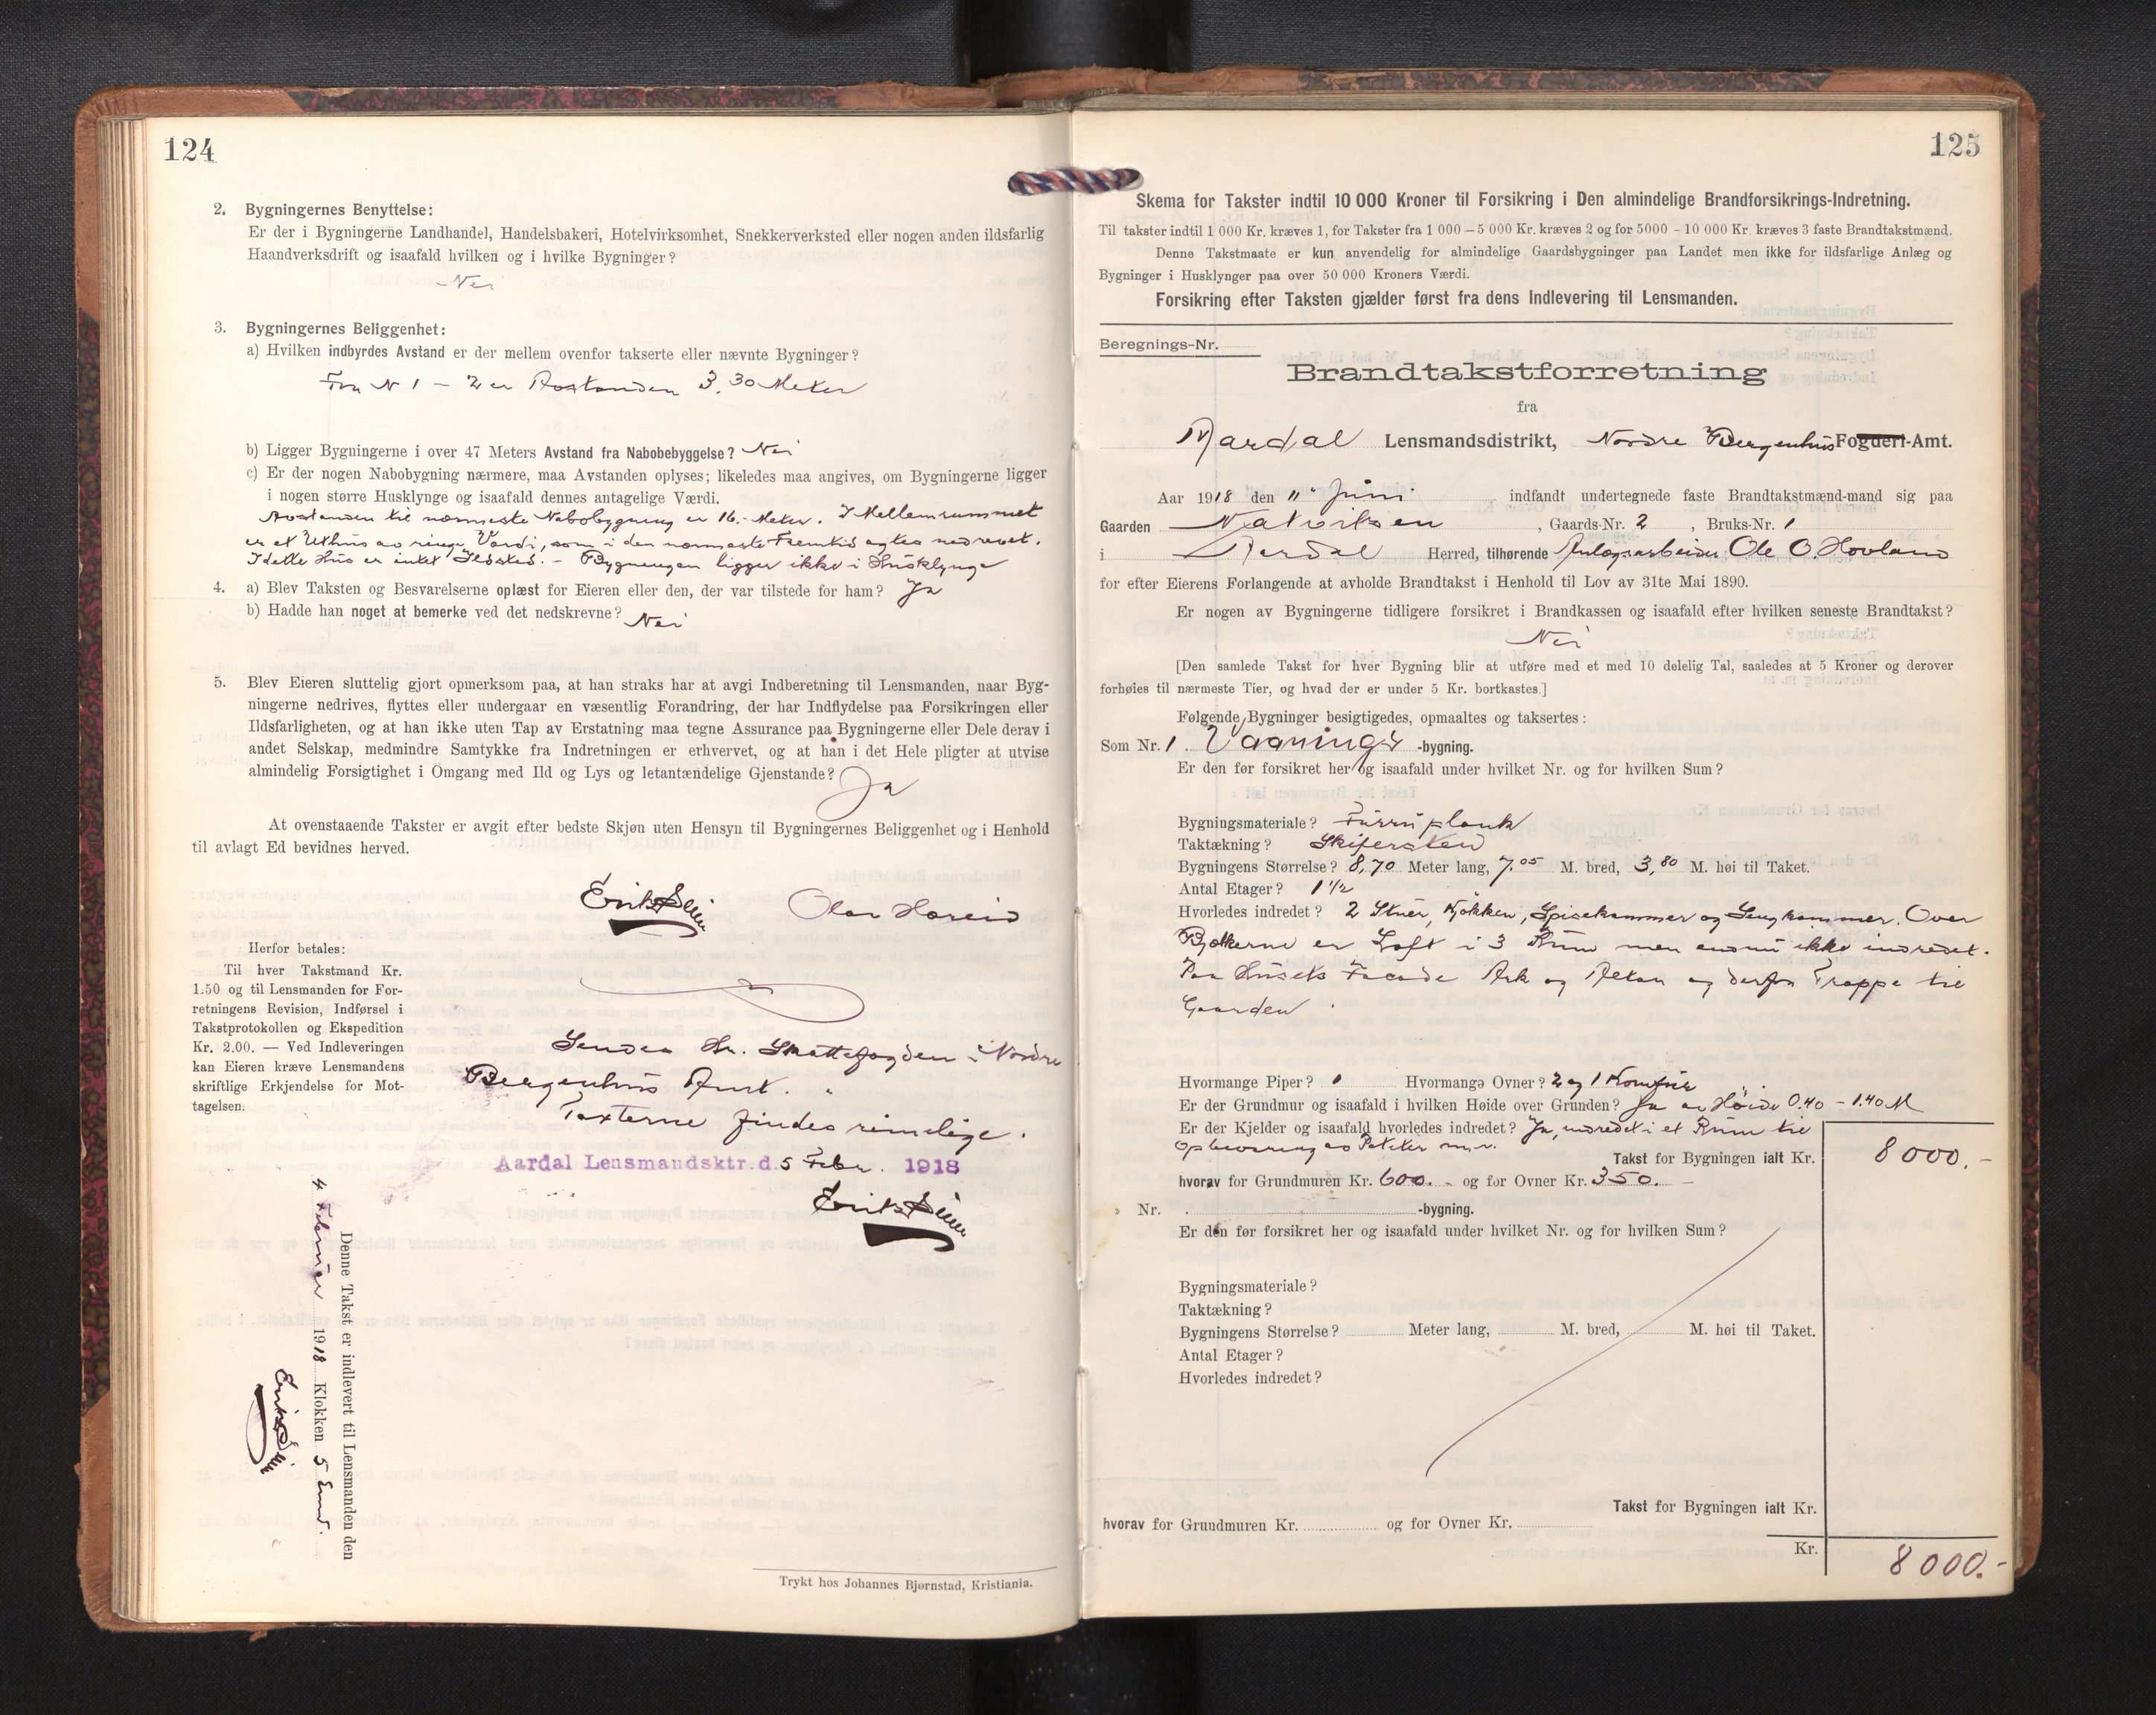 124
2. Bygningernes Benyttelse:
Er der i Bygningerne Landhandel, Handelsbakeri, Hotelvirksomhet, Snekkerverksted eller nogen anden ildsfarlig
Haandverksdrift og isaafald hvilken og i hvilke Bygninger?
Nei
3. Bygningernes Beliggenhet:
a) Hvilken indbyrdes Avstand er der mellem ovenfor takserte eller nævnte Bygninger?
Fra N 1 – 2 er Avstanden 3,30 Meter
b) Ligger Bygningerne i over 47 Meters Avstand fra Nabobebyggelse? Nei
c) Er der nogen Nabobygning nærmere, maa Avstanden oplyses; likeledes maa angives, om Bygningerne ligger
i nogen større Husklynge og isaafald dennes antagelige Værdi.
Avstanden til nærmeste Nabobygning er 16.- Meter. I Mellemrummet
er et Uthus av ringe Værdi, som i den nærmeste Fremtid agtes nedrevet.
I dette Hus er intet Ildsted. – Bygningen ligger ikke i Husklynge
4. a) Blev Taksten og Besvarelserne oplæst for Eieren eller den, der var tilstede for ham? Ja
b) Hadde han noget at bemerke ved det nedskrevne? Nei
5. Blev Eieren sluttelig gjort opmerksom paa, at han straks har at avgi Indberetning til Lensmanden, naar Byg-
ningerne nedrives, flyttes eller undergaar en væsentlig Forandring, der har Indflydelse paa Forsikringen eller
Ildsfarligheten, og at han ikke uten Tap av Erstatning maa tegne Assurance paa Bygningerne eller Dele derav i
andet Selskap, medmindre Samtykke fra Indretningen er erhvervet, og at han i det Hele pligter at utvise
almindelig Forsigtighet i Omgang med Ild og Lys og letantændelige Gjenstande? Ja
At ovenstaaende Takster er avgit efter bedste Skjøn uten Hensyn til Bygningernes Beliggenhet og i Henhold
til avlagt Ed bevidnes herved.
Olav Hæreid
Herfor betales:
Til hver Takstmand Kr.
1.50 og til Lensmanden for For-
retningens Revision, Indførsel i
Takstprotokollen og Ekspedition
Kr. 2.00. — Ved Indleveringen
kan Eieren kræve Lensmandens
skriftlige Erkjendelse for Mot-
tagelsen.
Sendes Hr. Skattefogden i Nordre
Bergenhus Amt.
Taxterne findes rimelige.
Aardal Lensmandsktr. d. 5 Febr. 1918
Denne Takst er indlevert til Lensmanden den
4 Februar 1918 Klokken 5 Emd.
Trykt hos Johannes Bjørnstad, Kristiania.
125
Skema for Takster indtil 10 000 Kroner til Forsikring i Den almindelige Brandforsikrings-Indretning.
Til takster indtil 1 000 Kr. kræves 1, for Takster fra 1 000 — 5 000 Kr. kræves 2 og for 5000 – 10 000 Kr. kræves 3 faste Brandtakstmænd.
Denne Takstmaate er kun anvendelig for almindelige Gaardsbygninger paa Landet men ikke for ildsfarlige Anlæg og
Bygninger i Husklynger paa over 50 000 Kroners Værdi.
Forsikring efter Taksten gjælder først fra dens Indlevering til Lensmanden.
Beregnings-Nr.
Brandtakstforretning
fra
Aardal Lensmandsdistrikt, Nordre Bergenhus Fogderi-Amt.
Aar 1918 den 11' Juni indfandt undertegnede faste Brandtakstmænd-mand sig paa
Gaarden Natviken, Gaards-Nr. 2, Bruks-Nr. 1
i Aardal Herred, tilhørende Anlægsarbeider Ole O. Hovland
for efter Eierens Forlangende at avholde Brandtakst i Henhold til Lov av 31te Mai 1890.
Er nogen av Bygningerne tidligere forsikret i Brandkassen og isaafald efter hvilken seneste Brandtakst?
Nei
[Den samlede Takst for hver Bygning blir at utføre med et med 10 delelig Tal, saaledes at 5 Kroner og derover
forhøies til nærmeste Tier, og hvad der er under 5 Kr. bortkastes.]
Følgende Bygninger besigtigedes, opmaaltes og taksertes:
Som Nr. 1. Vaanings-bygning.
Er den før forsikret her og isaafald under hvilket Nr. og for hvilken Sum?
Bygningsmateriale? Furruplank
Taktækning? Skifersten
Bygningens Størrelse? 8,70 Meter lang, 7.05 M. bred, 3,80 M. høi til Taket.
Antal Etager? 1 1/2
Hvorledes indredet? 2 Stuer, Kjøkken, Spisekammer og Sengkammer. Over
Bjelkerne er Loft i 3 Rum men endnu ikke indredet.
Paa Husets Facade Ark og Altan og derfra Trappe til
Gaarden.
Hvormange Piper? 1 Hvormange Ovner? 2 og 1 Komfur
Er der Grundmur og isaafald i hvilken Høide over Grunden? Ja av Høide 0.40 – 1.40 M
Er der Kjelder og isaafald hvorledes indredet? Ja, indredet i et Rum til
opbevaring av Poteter m.v.
Takst for Bygningen ialt Kr. 8000.-
hvorav for Grundmuren Kr. 600.- og for Ovner Kr. 350.-
» Nr. -bygning.
Er den før forsikret her og isaafald under hvilket Nr. og for hvilken Sum?
Bygningsmateriale?
Taktækning?
Bygningens Størrelse? Meter lang, M. bred, M. høi til Taket.
Antal Etager?
Hvorledes indredet?
Takst for Bygningen ialt Kr.
hvorav for Grundmuren Kr. og for Ovner Kr.
Kr. 8000.-